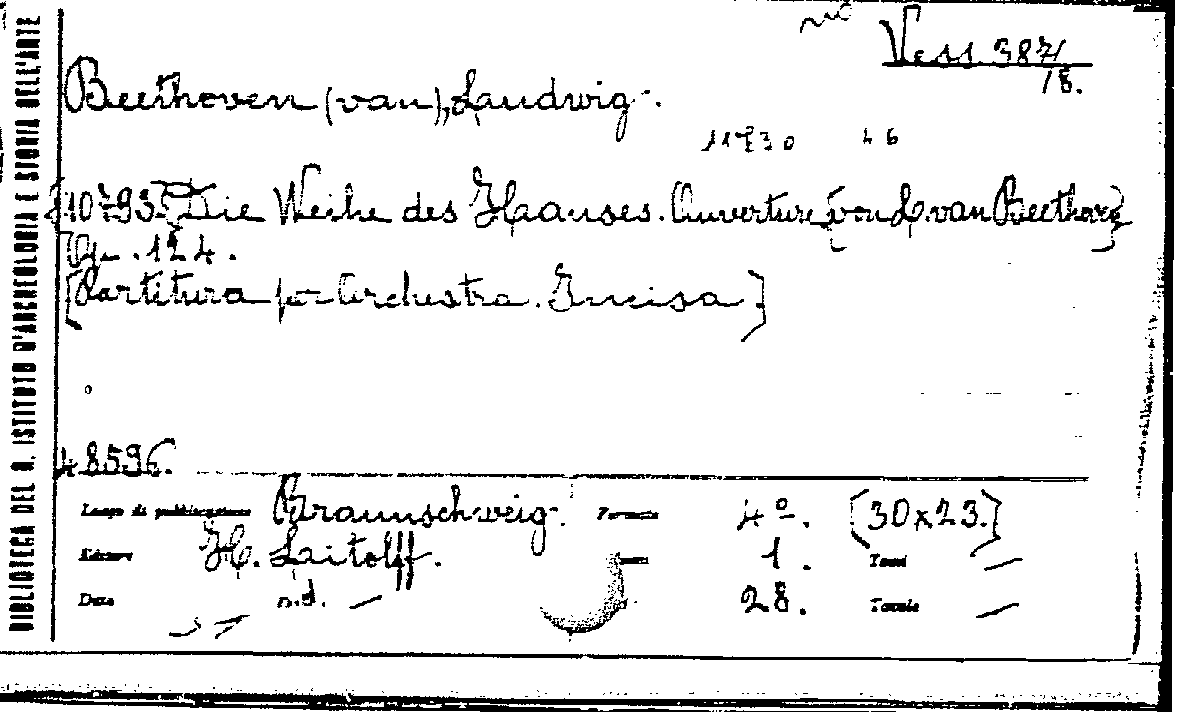 BIBLIOTECA DEL R. ISTITUTO D'ARCHEOLOGIA E STORIA DELL'ARTE
Vess 387/
/8.
Beethoven (van), Laudwig.
11730 46
10793. Die Weihe des Hauses. Ouverture [von L. van Beethoven]
Op. 124.
[Partitura per Orchestra. Incisa]
48596.
Luogo di pubblicazione Braunschweig. Formato 4º. [30x23.]
Editore H. Laitolff. 1. Tomi —
Data n.d. — 28. Tavole —